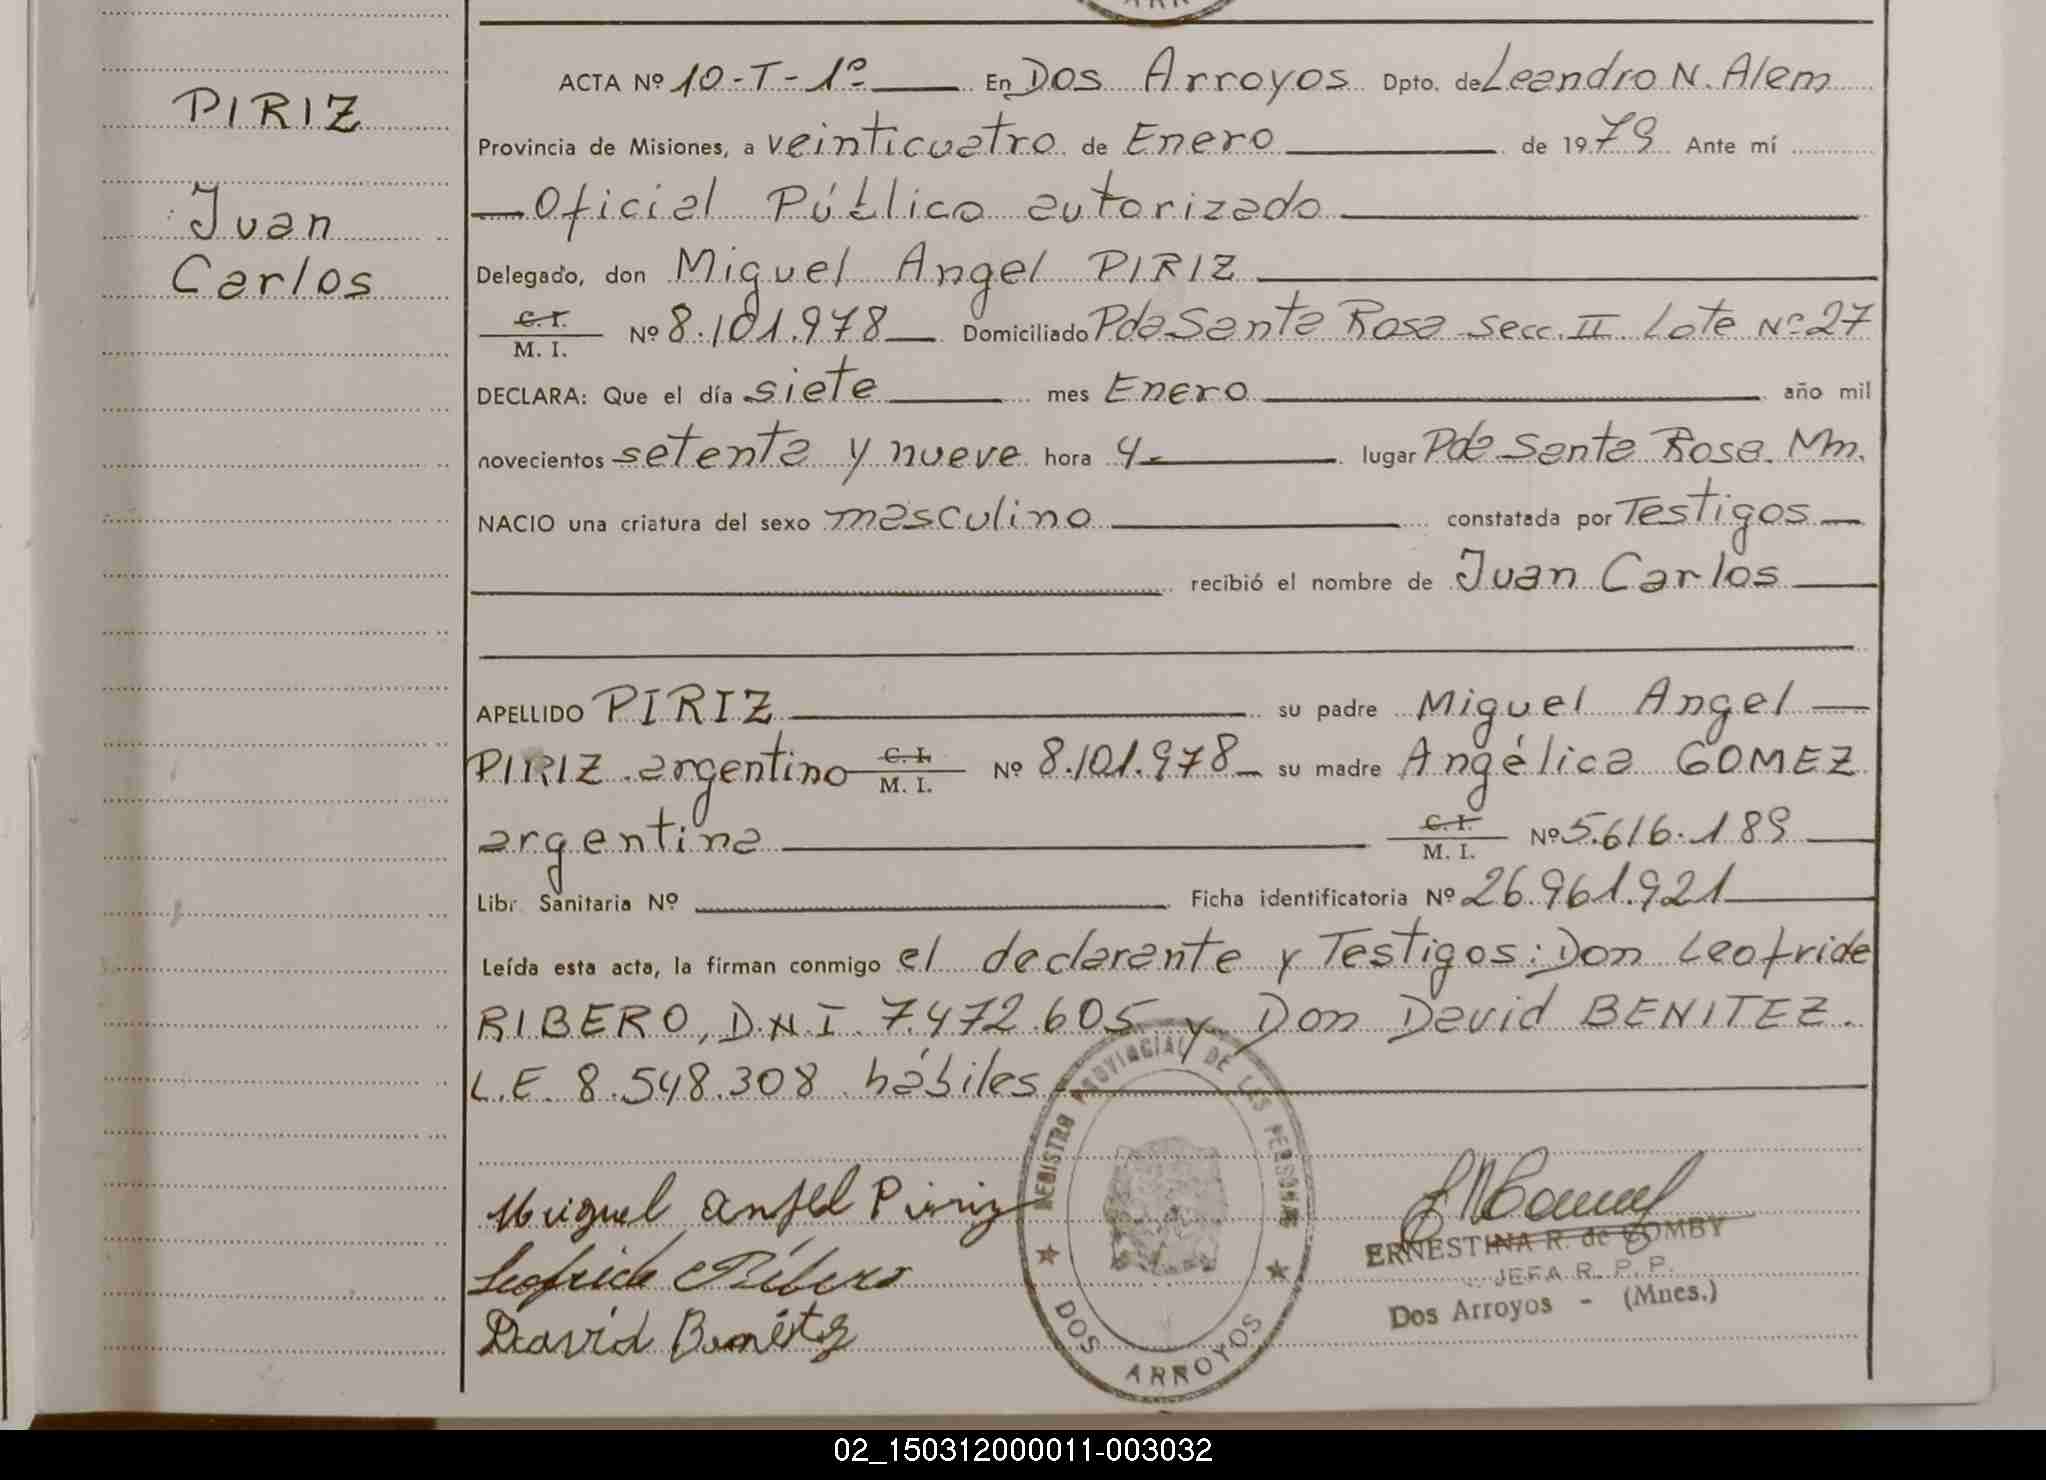 PIRIZ
Juan
Carlos
ACTA Nº 10-T-1º En Dos Arroyos Dpto. de Leandro N. Alem
Provincia de Misiones, a veinticuatro de Enero de 1979 Ante mí
Oficial Público autorizado
Delegado, don Miguel Angel PIRIZ
C. I. M. I. Nº 8.101.978 Domiciliado Pda Santa Rosa secc. II Lote Nº 27
DECLARA: Que el día siete mes Enero año mil
novecientos setenta y nueve hora 4 lugar Pda Santa Rosa. Mm.
NACIO una criatura del sexo masculino constatada por Testigos
recibió el nombre de Juan Carlos
APELLIDO PIRIZ su padre Miguel Angel
PIRIZ argentino C. I. M. I. Nº 8.101.978 su madre Angélica GOMEZ
argentina C. I. M. I. Nº 5.616.189
Libr. Sanitaria Nº Ficha identificatoria Nº 26.961.921
Leída esta acta, la firman conmigo el declarante y Testigos: Don Leofride
RIBERO, D.N.I. 7.472.605 y Don David BENITEZ.
L.E. 8.548.308 hábiles
REGISTRO PROVINCIAL DE LAS PERSONAS
DOS ARROYOS
Miguel Angel Piriz
Leofride Ribero
David Benitez
ERNESTINA R. de COMBY
JEFA R. P. P.
Dos Arroyos - (Mnes.)
02_150312000011-003032